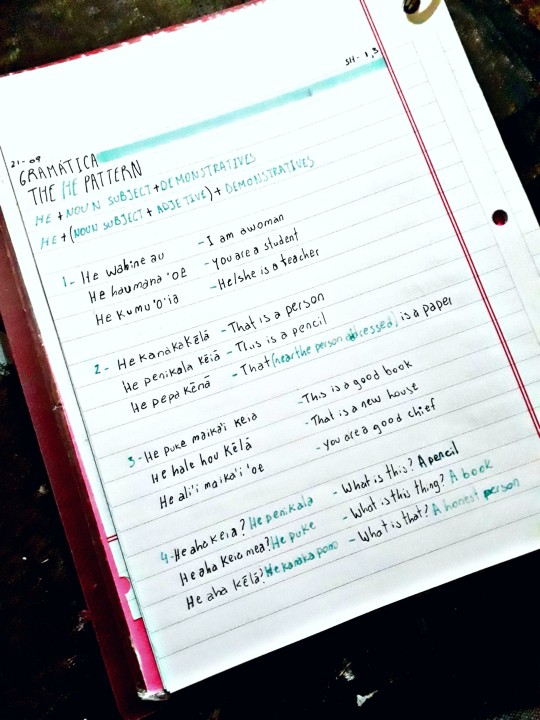 SH - 1,3
21-09
GRAMÁTICA
THE HE PATTERN
HE + NOUN SUBJECT + DEMONSTRATIVES
HE + (NOUN SUBJECT + ADJETIVE) + DEMONSTRATIVES
1- He wahine au - I am a woman
He haumāna 'oe - you are a student
He Kumu 'o ia - He/she is a teacher
2- He Kanaka Kēlā - That is a person
He penikala kēia - This is a pencil
He pepa Kēnā - That (near the person addressed) is a paper
3- He puke maika'i keia - This is a good book
He hale hou Kēlā - That is a new house
He ali'i maika'i 'oe - you are a good chief
4- He aha keia? He penikala - What is this? A pencil
He aha keia mea? He puke - What is this thing? A book
He aha Kēlā? He kanaka pono - What is that? A honest person